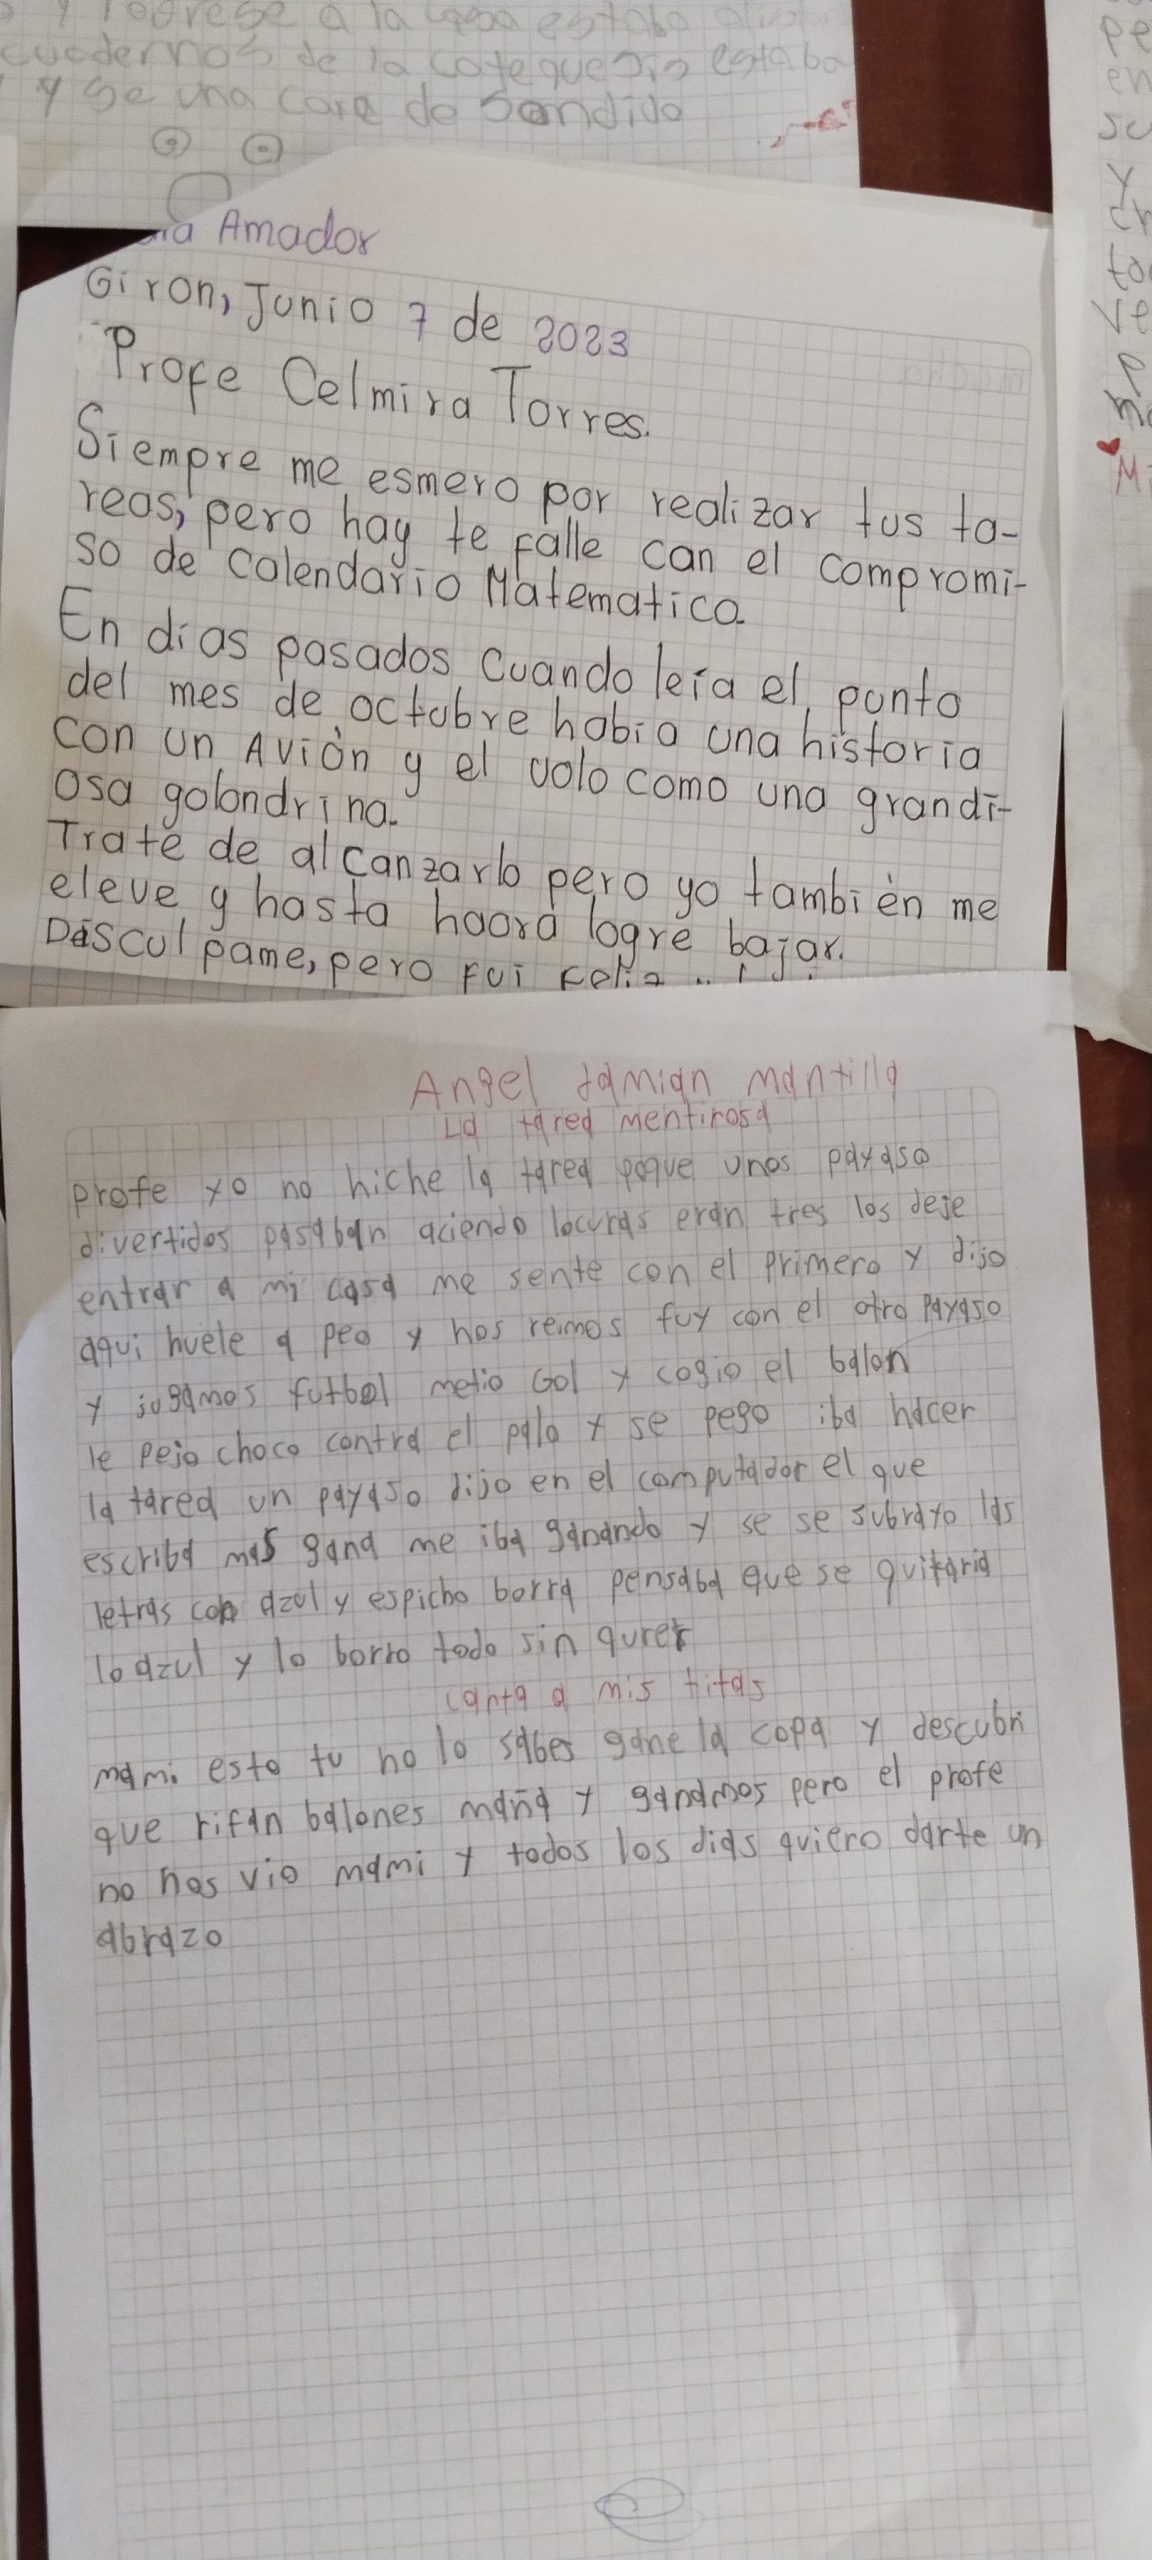 y regrese a la casa estaba
cuadernos de la catequesis estaba
y se una cara de
Amador
Giron, Junio 7 de 2023
Profe Celmira Torres.
Siempre me esmero por realizar tus ta-
reas, pero hay te falle can el compromi-
so de Calendario Matematico.
En dias pasados Cuando leía el punto
del mes de octubre habia una historia
con un Avión y el volo como una grandi-
osa golondrina.
Trate de alcanzarlo pero yo también me
eleve y hasta haora logre bajar.
Disculpame, pero fui feliz
Angel damian mantilla
La tarea mentirosa
profe yo no hiche la tarea poque unos payaso
divertidos pasaban aciendo locuras eran tres los deje
entrar a mi casa me sente con el primero y dijo
aqui huele a peo y nos reimos fuy con el otro payaso
y jugamos futbol metio Gol y cogio el balon
le pejo choco contra el palo y se pego iba hacer
la tarea un payaso dijo en el computador el que
escriba mas gana me iba ganando y se se subrayo las
letras con azul y espicho borra pensaba que se quitaria
lo azul y lo borro todo sin qurer
canta a mis titas
mami esto tu no lo sabes gane la copa y descubri
que rifan balones maña y ganamos pero el profe
no nos vio mami y todos los dias quiero darte un
abrazo
pe
en
su
y
to
ve
Mi